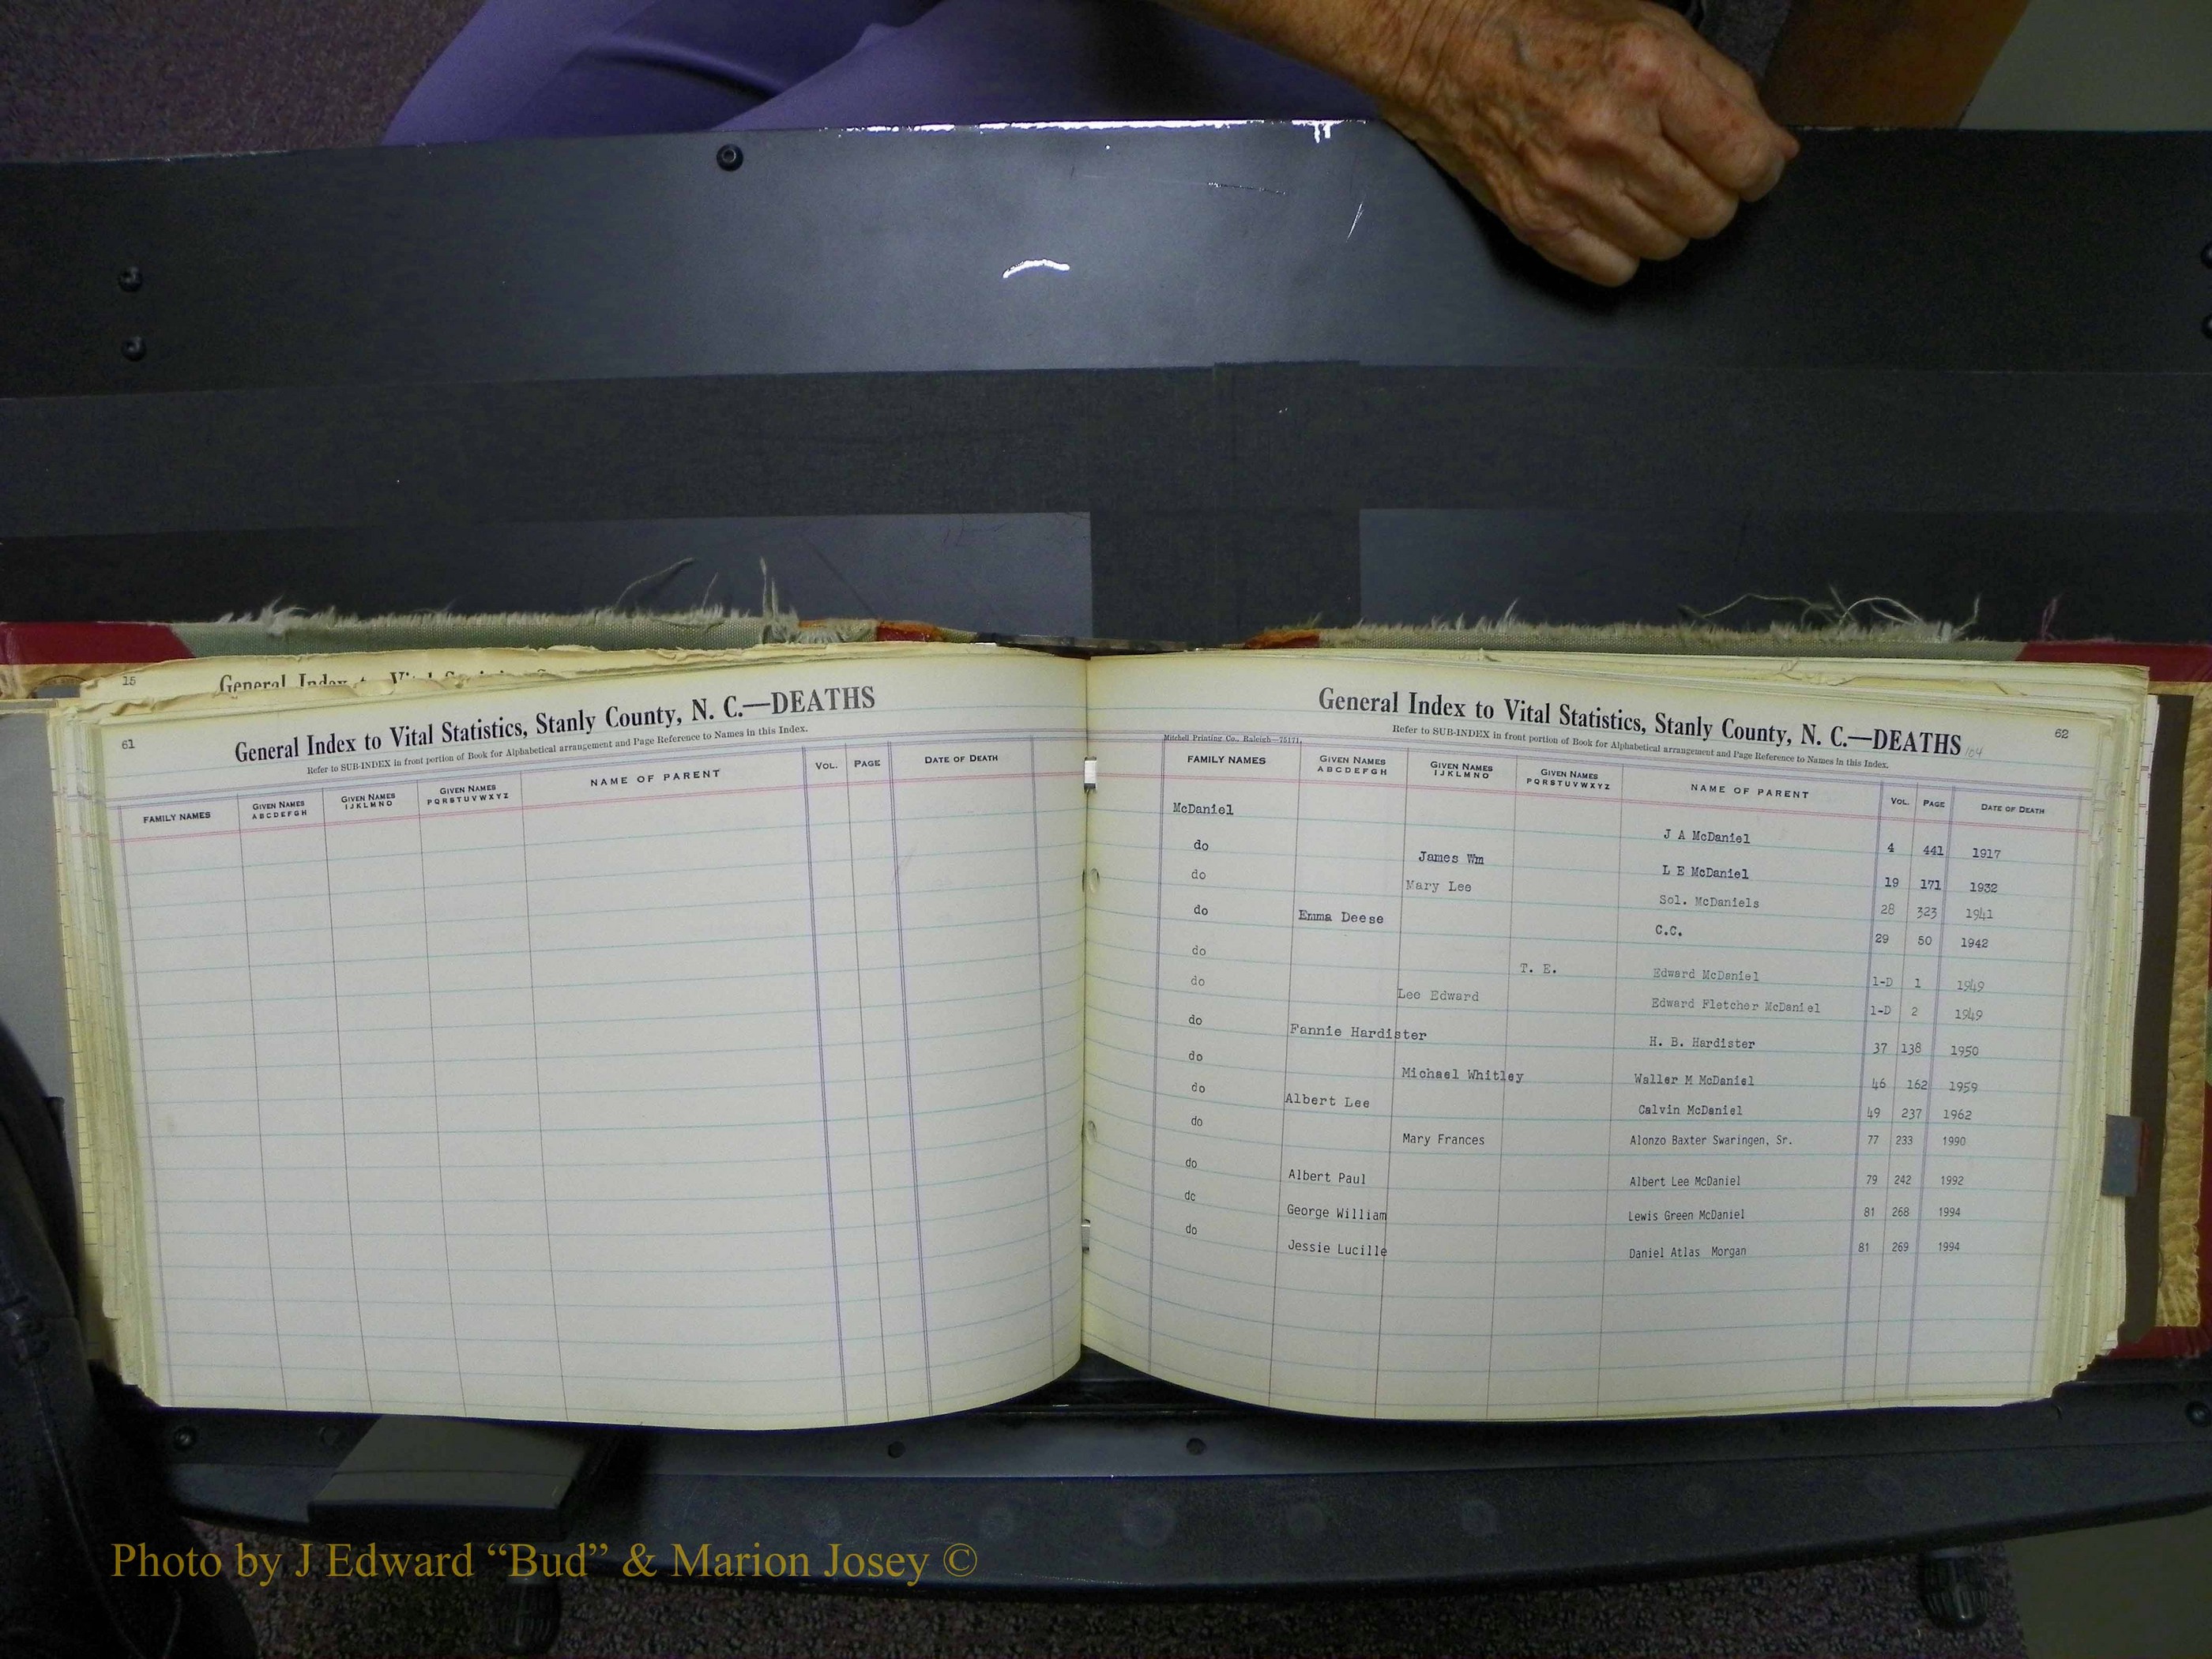 15
General Index to Vital Statistics
61
General Index to Vital Statistics, Stanly County, N. C.—DEATHS
Refer to SUB-INDEX in front portion of Book for Alphabetical arrangement and Page Reference to Names in this Index.
FAMILY NAMES GIVEN NAMES ABCDEFGH GIVEN NAMES IJKLMNO GIVEN NAMES PQRSTUVWXYZ NAME OF PARENT VOL. PAGE DATE OF DEATH
62
General Index to Vital Statistics, Stanly County, N. C.—DEATHS 104
Refer to SUB-INDEX in front portion of Book for Alphabetical arrangement and Page Reference to Names in this Index.
Mitchell Printing Co., Raleigh—75171
FAMILY NAMES GIVEN NAMES ABCDEFGH GIVEN NAMES IJKLMNO GIVEN NAMES PQRSTUVWXYZ NAME OF PARENT VOL. PAGE DATE OF DEATH
McDaniel J A McDaniel 4 441 1917
do James Wm L E McDaniel 19 171 1932
do Mary Lee Sol. McDaniels 28 323 1941
do Emma Deese C.C. 29 50 1942
do T. E. Edward McDaniel 1-D 1 1949
do Lee Edward Edward Fletcher McDaniel 1-D 2 1949
do Fannie Hardister H. B. Hardister 37 138 1950
do Michael Whitley Waller M McDaniel 46 162 1959
do Albert Lee Calvin McDaniel 49 237 1962
do Mary Frances Alonzo Baxter Swaringen, Sr. 77 233 1990
do Albert Paul Albert Lee McDaniel 79 242 1992
do George William Lewis Green McDaniel 81 268 1994
do Jessie Lucille Daniel Atlas Morgan 81 269 1994
Photo by J Edward “Bud” & Marion Josey ©